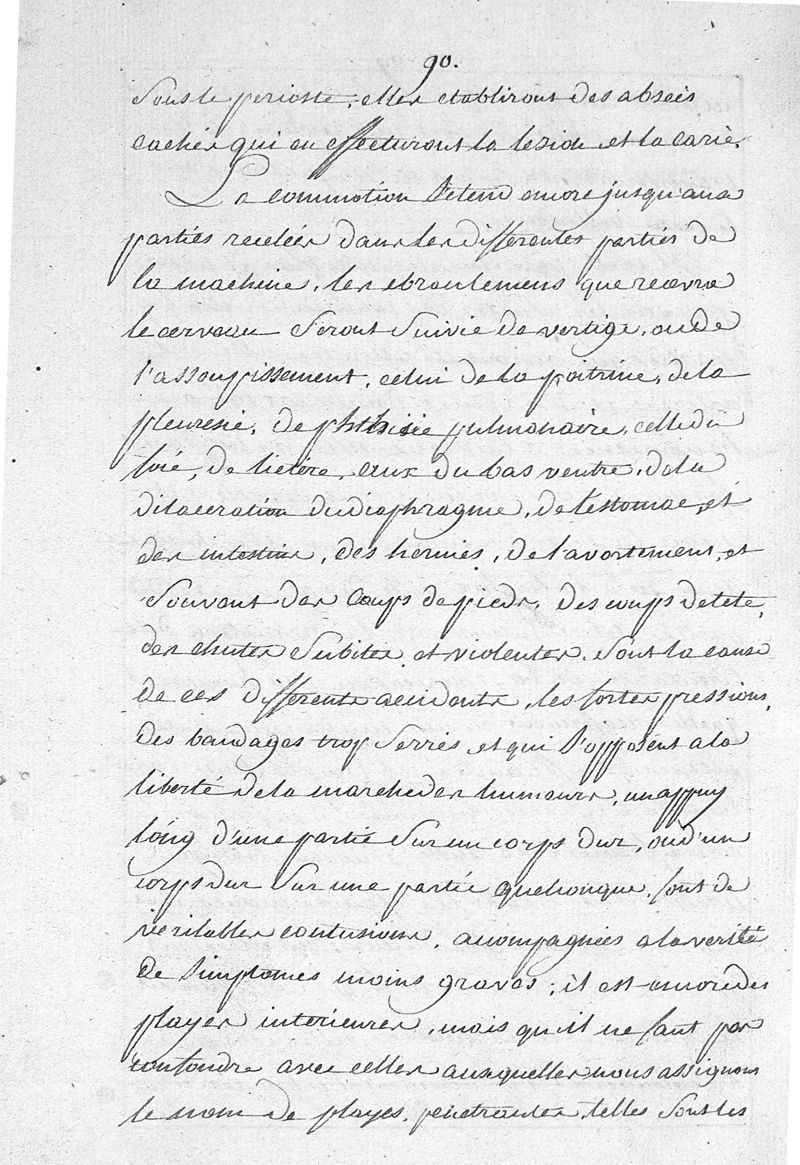 90.
Sous le perioste, elles etabliront des absés
cachés qui en effecturont la lezion et la carie.
La commotion S'etend encore jusqu'aux
parties recelées dans les differentes parties de
la machine, les ebranlemens que recevra
le cerveau Seront Suivie de vertige, ou de
l'assoupissement, celui de la poitrine, de la
pleuresie, de phthisie pulmonaire, celle du
foié, de l'ictere, ceux du bas ventre, de la
dilaceration du diaphragme, de l'estomac, et
des intestins, des hernies, de l'avortement, et
Souvent des Coups de pieds, des coups de tete,
des chutes Subites, et violentes, Sont la cause
de ces differents accidents, les fortes pressions,
des bandages trop Serrés, et qui S'opposent a la
liberté de la marche des humeurs, un appuy
long d'une partie Sur un corps dur, ou d'un
corps dur Sur une partie quelconque, Sont de
veritables contusions, acompagnées a la verité
de Simptomes moins graves; il est encore des
playes interieures, mais qu'il ne faut pas
confondre avec celles ausquelles nous assignons
le nom de playes, penetrantes, telles Sont les